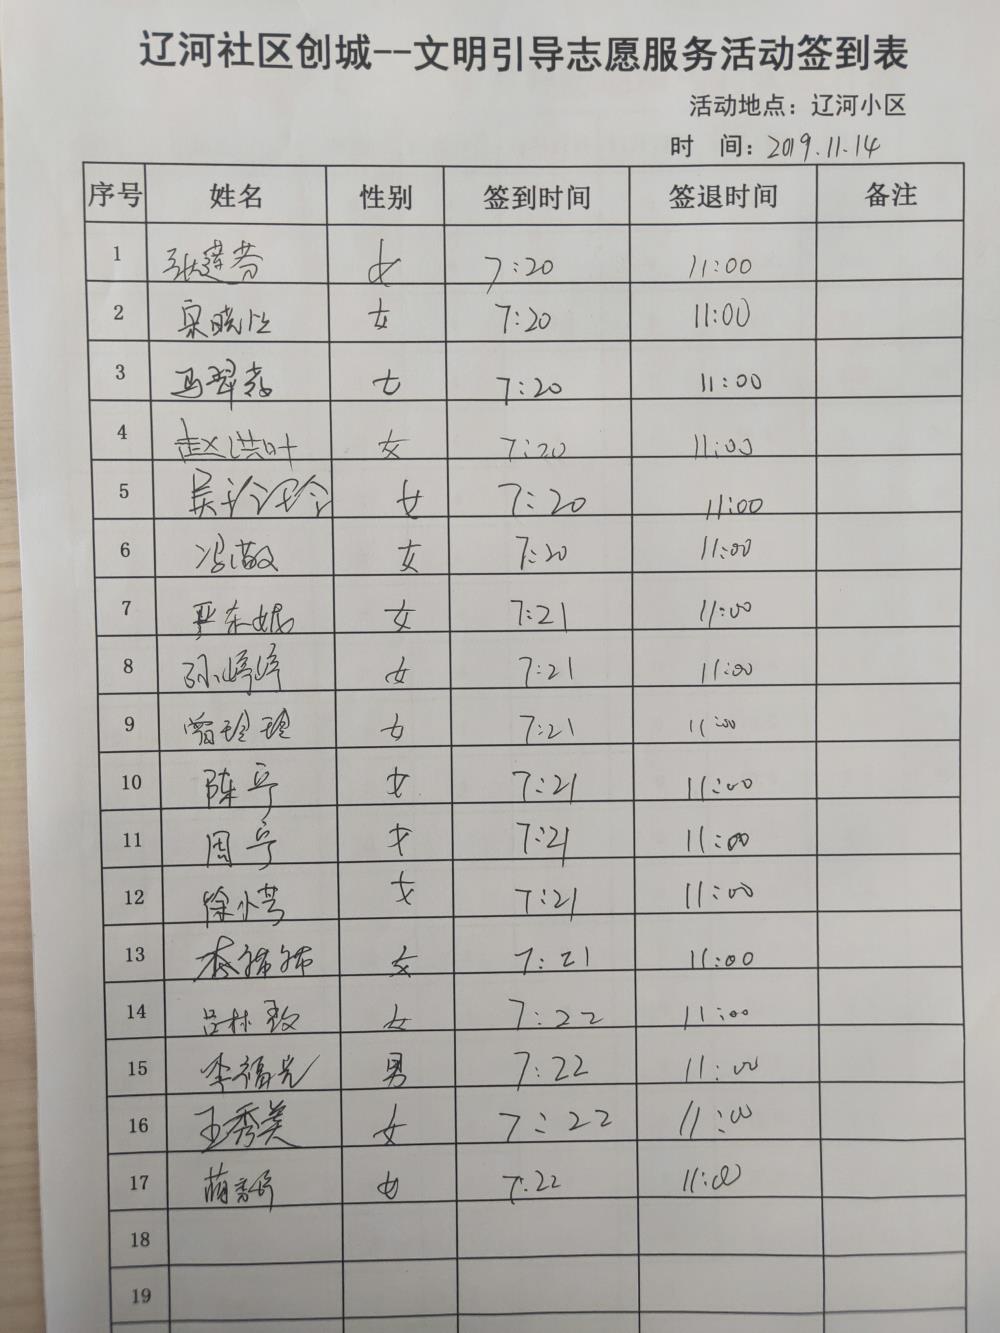 辽河社区创城--文明引导志愿服务活动签到表
活动地点：辽河小区
时 间：2019.11.14
序号 姓名 性别 签到时间 签退时间 备注
1 张莲芳 女 7:20 11:00
2 女 7:20 11:00
3 女 7:20 11:00
4 赵洪叶 女 7:20 11:00
5 女 7:20 11:00
6 冯敏 女 7:20 11:00
7 女 7:21 11:00
8 孙婷婷 女 7:21 11:00
9 曾玲玲 女 7:21 11:00
10 陈宁 女 7:21 11:00
11 周宁 女 7:21 11:00
12 女 7:21 11:00
13 女 7:21 11:00
14 女 7:22 11:00
15 李福光 男 7:22 11:00
16 王秀美 女 7:22 11:00
17 女 7:22 11:00
18
19